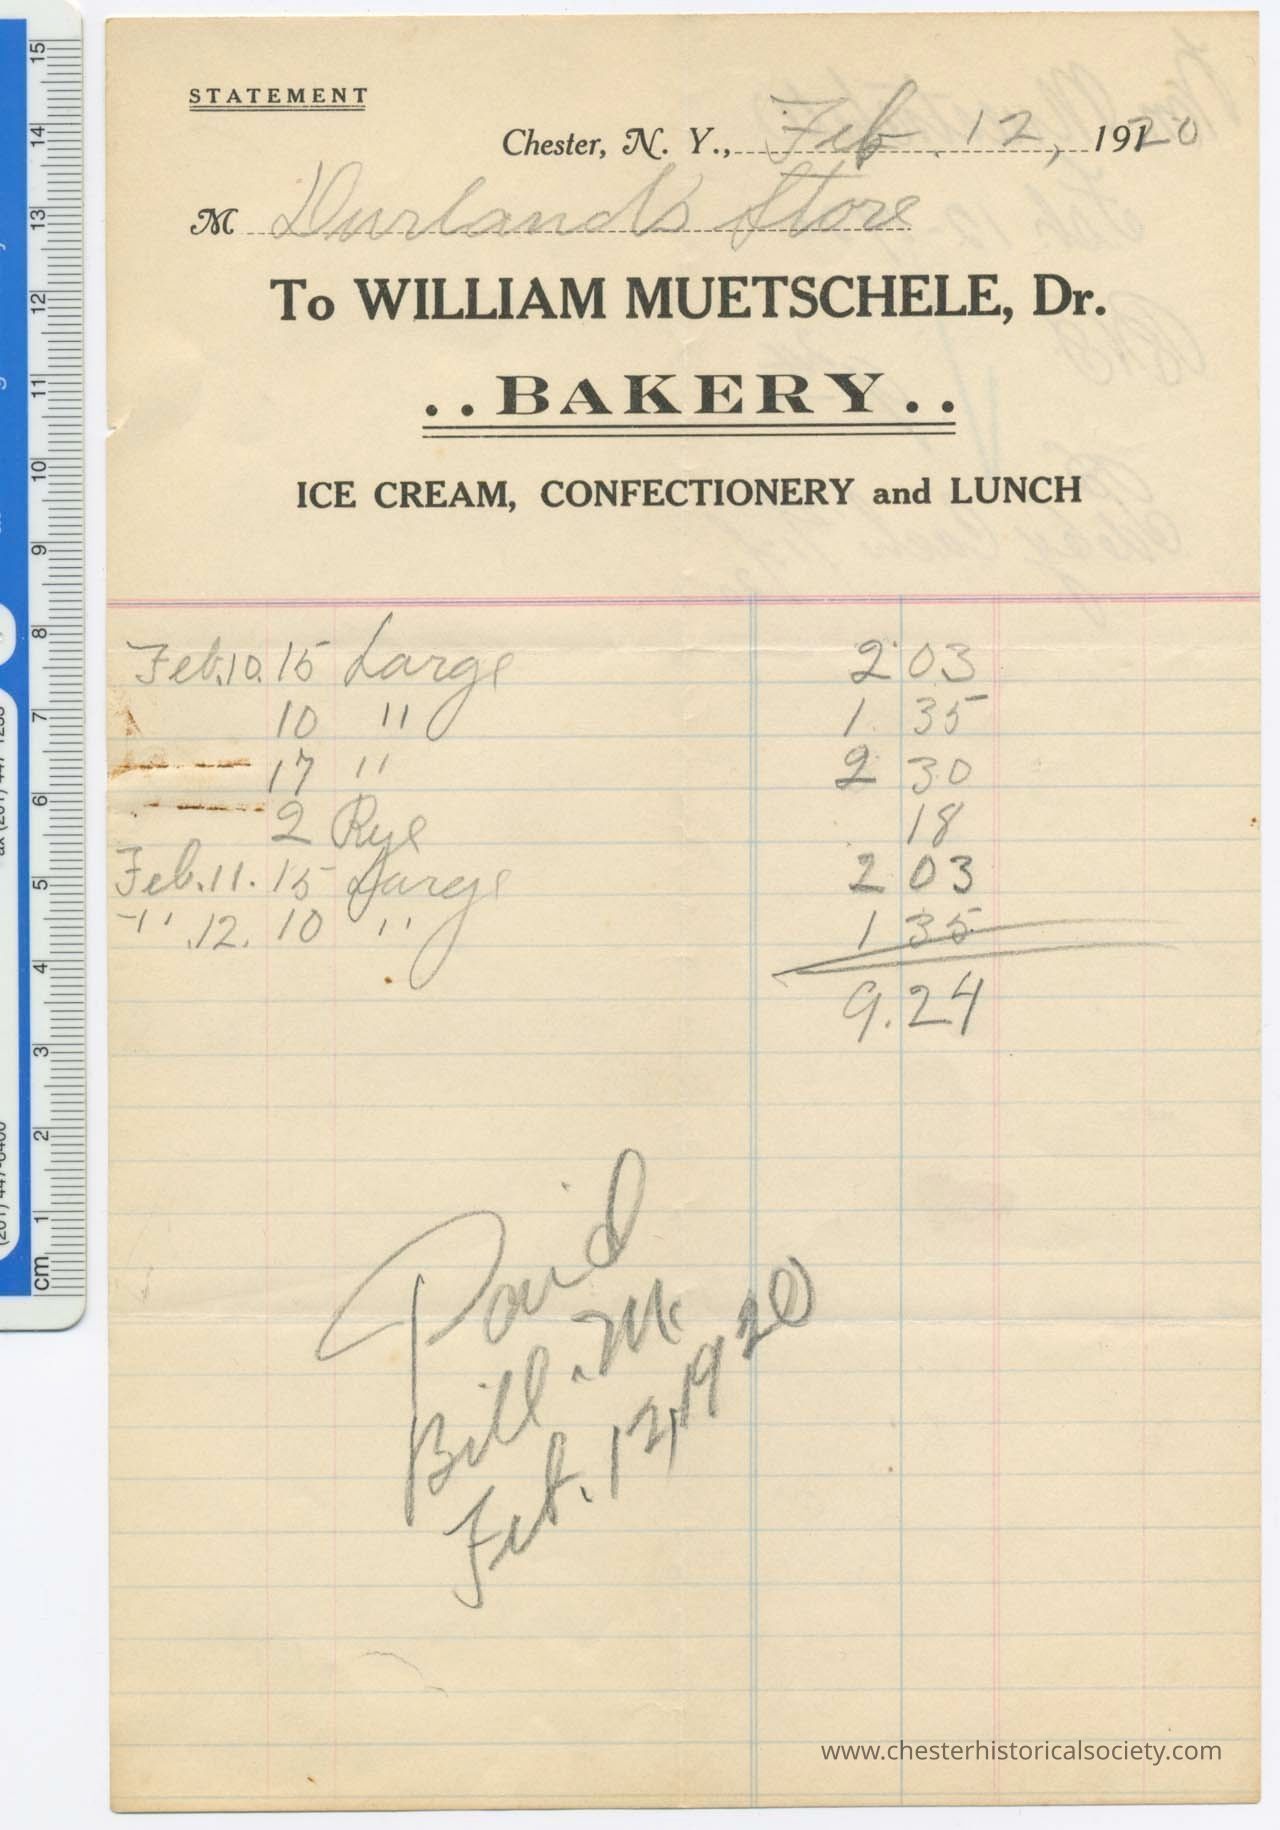 STATEMENT
Chester, N. Y., Feb. 12, 1920
M Durland's Store
To WILLIAM MUETSCHELE, Dr.
..BAKERY..
ICE CREAM, CONFECTIONERY and LUNCH
Feb. 10. 15 Large 2 03
10 " 1. 35
17 " 2 30
2 Rye 18
Feb. 11. 15 Large 2 03
" . 12. 10 " 1 35
9.24
Paid
Bill. M
Feb. 12, 1920
www.chesterhistoricalsociety.com
cm 1 2 3 4 5 6 7 8 9 10 11 12 13 14 15